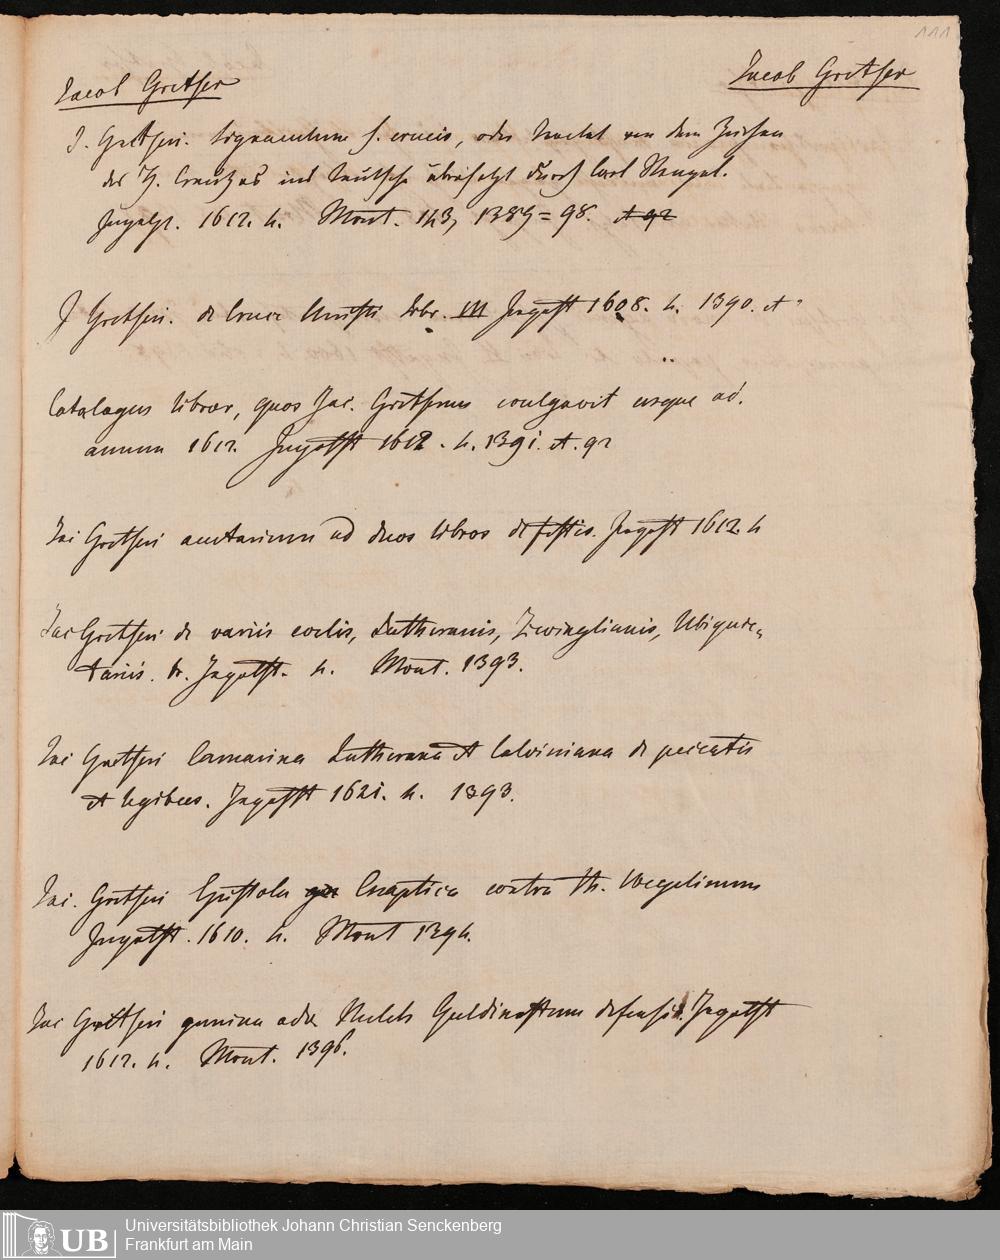 111
Jacob Gretser
Jacob Gretser
J. Gretseri. signaculum s. crucis, oder Tractat von dem Zeichen
des H. Creutzes ins Teutsche übersetzt durch Carl Stengel.
Ingolst. 1612. 4. Mont. 143, 1389 = 98. et 92
J Gretseri. de Cruce Christi libr. III Ingolst 1608. 4. 1390. et
Catalogus libror, quos Jac. Gretserus evulgavit usque ad.
annum 1612. Ingolstt 1612. 4. 1391. et. 92
Jac Gretseri auctarium ad duos libros de festis. Ingolst 1612. 4
Jac Gretseri de variis coelis, Lutheranis, Zwinglianis, Ubique-
tariis. Ingolst. 4. Mont. 1393.
Jac Gretseri Camarina Lutherana et Calviniana de peccatis
et legibus. Ingolstt 1621. 4. 1393.
Jac. Gretseri Epistola contra Th. Wegelinum
Ingolst. 1610. 4. Mont 1394.
Jac Gretseri gemina adv. Melch Guldinastrum defensio. Ingolst
1612. 4. Mont. 1396.
UB
Universitätsbibliothek Johann Christian Senckenberg
Frankfurt am Main